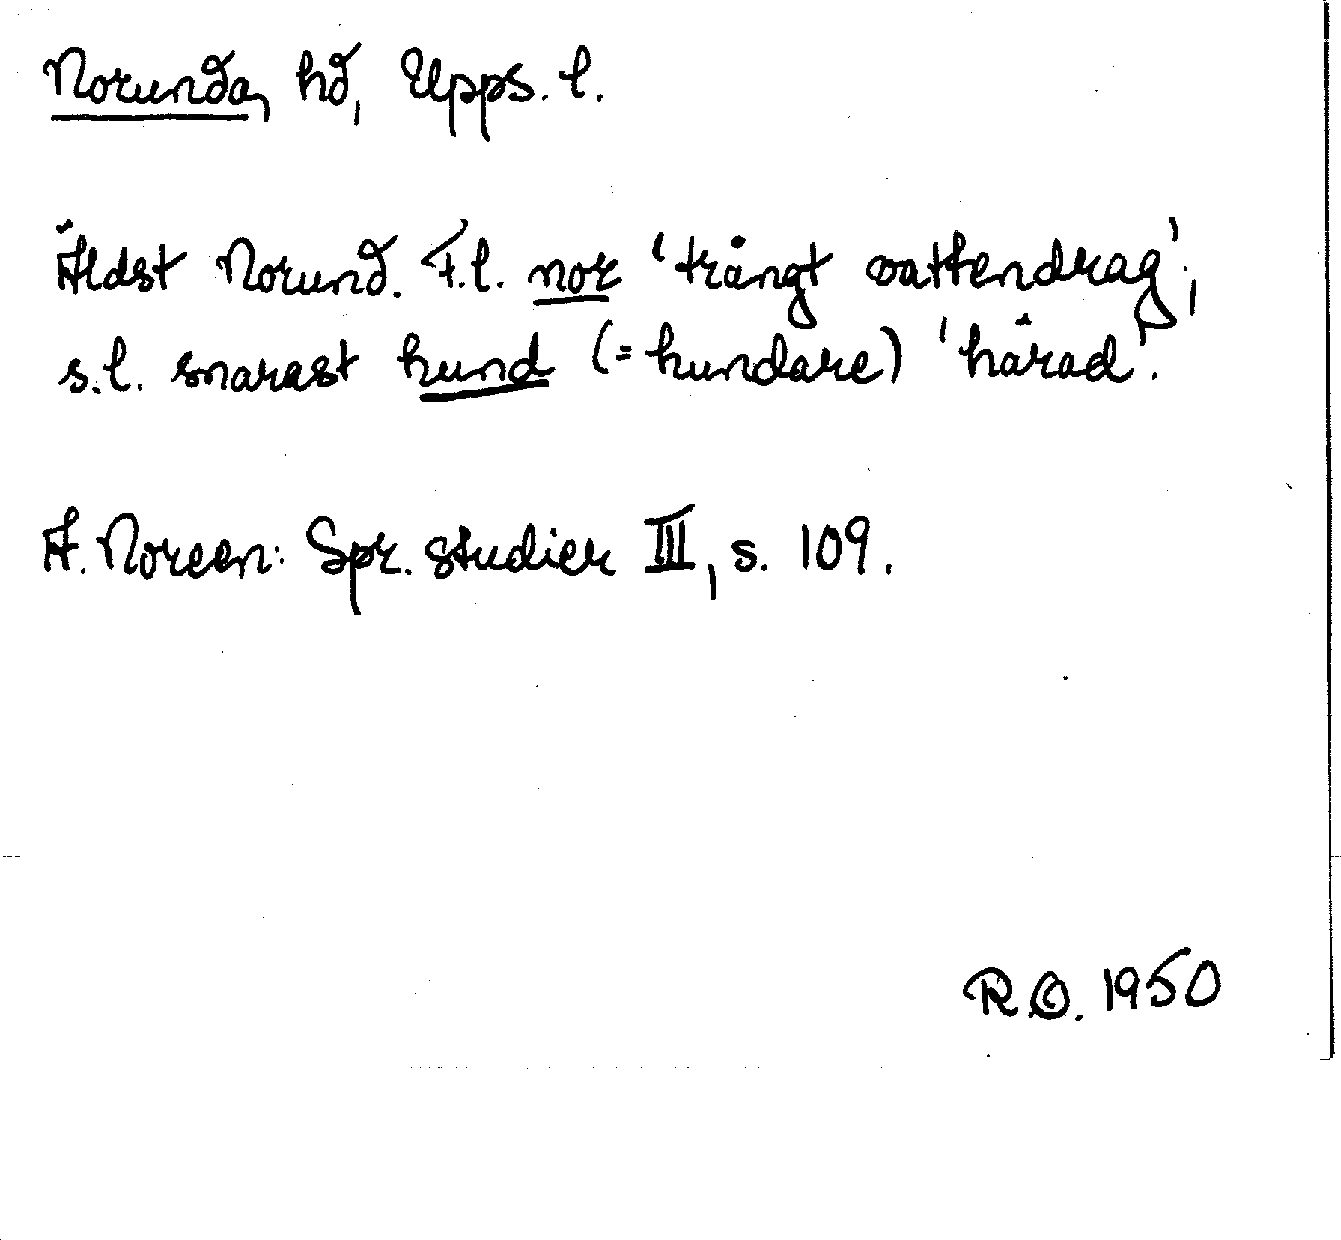 Norunda, hd, Upps. l.
Äldst Norund. F.l. nor 'trångt vattendrag',
s.l. snarast hund (= hundare) 'härad'.
A. Noreen: Spr. studier III, s. 109.
R.O. 1950